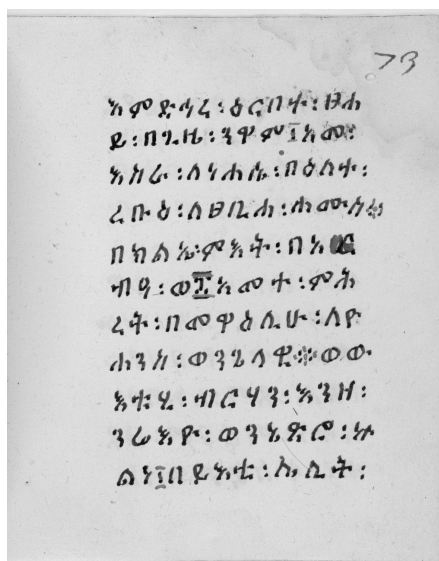 እምድኅረ፡ዕርበተ፡ፀሐ
ይ፡በጊዜ፡ንዋም፤አመ፡
ለነሐሴ፡በዕለተ፡
ረቡዕ፡ለፀቢሐ፡ሐሙስ፨
በክልኤ፡ምእት፡
ብዓ፡አመተ፡ምሕ
ረት፡በመዋዕሊሁ፡ለዮ
ሐንስ፡ወንጌላዊ፨ወው
እቱሂ፡ብርሃን፡እንዘ፡
ንሬእዮ፡ወንኔጽሮ፡ኵ
ልነ፤በይእቲ፡ሌሊት፡